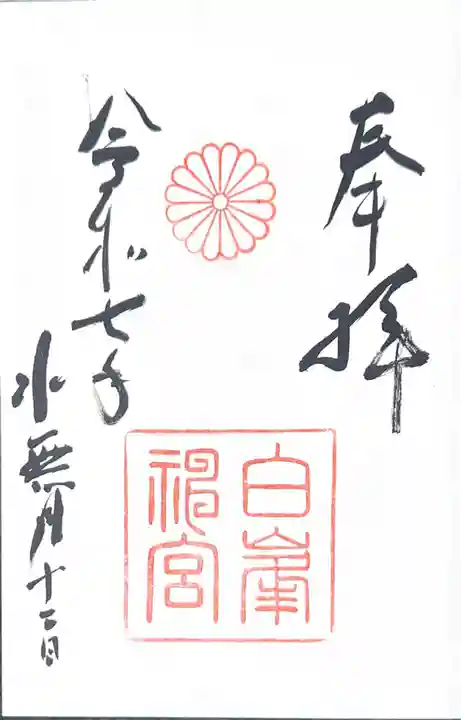 奉拝
白峯
神宮
令和七年
水無月十二日